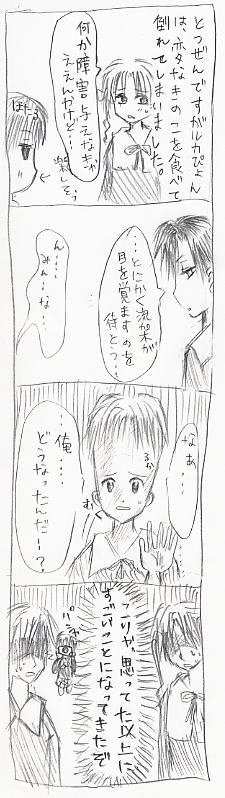 とつぜんですがルカぴょん
は、変なきのこを食べて
倒れてしまいました。
何か障害与えなきゃ
ええんやけど…
楽しそう
ん……
みん…な…
…とにかく流加木が
目を覚ますのを
待とう…
なぁ…
るか
む
…俺…
どうなったんだー？
こりゃ、思ってた以上に
すごいことになってきたぞ